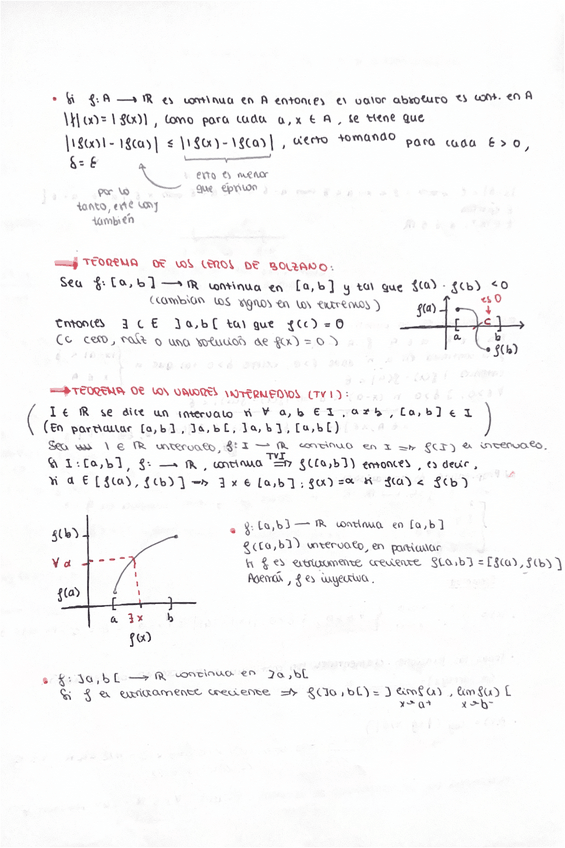 • Si f: A → IR es continua en A entonces el valor absoluto es cont. en A
|f|(x) = |f(x)|, como para cada a, x ∈ A, se tiene que
||f(x)| - |f(a)| ≤ |f(x) - f(a)|, cierto tomando para cada ε > 0,
δ = ε
esto es menor
que épsilon
por lo
tanto, este cong
también
→ TEOREMA DE LOS CEROS DE BOLZANO:
Sea f: [a, b] → IR continua en [a, b] y tal que f(a) · f(b) < 0
(cambian los signos en los extremos)
Entonces ∃ c ∈ ]a, b[ tal que f(c) = 0
(c cero, raíz o una solución de f(x) = 0)
es 0
f(a)
a
c
b
f(b)
→ TEOREMA DE LOS VALORES INTERMEDIOS (TVI):
I ∈ IR se dice un intervalo si ∀ a, b ∈ I, a ≠ b, [a, b] ∈ I
(En particular [a, b], ]a, b[, ]a, b], [a, b[)
Sea I ∈ IR intervalo, f: I → IR continua en I ⇒ f(I) es intervalo.
Si I: [a, b], f: → IR, continua TVI ⇒ f([a, b]) entonces, es decir,
si α ∈ [f(a), f(b)] → ∃ x ∈ [a, b] : f(x) = α si f(a) < f(b)
f(b)
∀ α
f(a)
a ∃ x b
f(x)
• f: [a, b] → IR continua en [a, b]
f([a, b]) intervalo, en particular
si f es estrictamente creciente f[a, b] = [f(a), f(b)]
Además, f es inyectiva.
• f: ]a, b[ → IR continua en ]a, b[
Si f es estrictamente creciente ⇒ f(]a, b[) = ] lim f(x), lim f(x) [
x→a+ x→b-